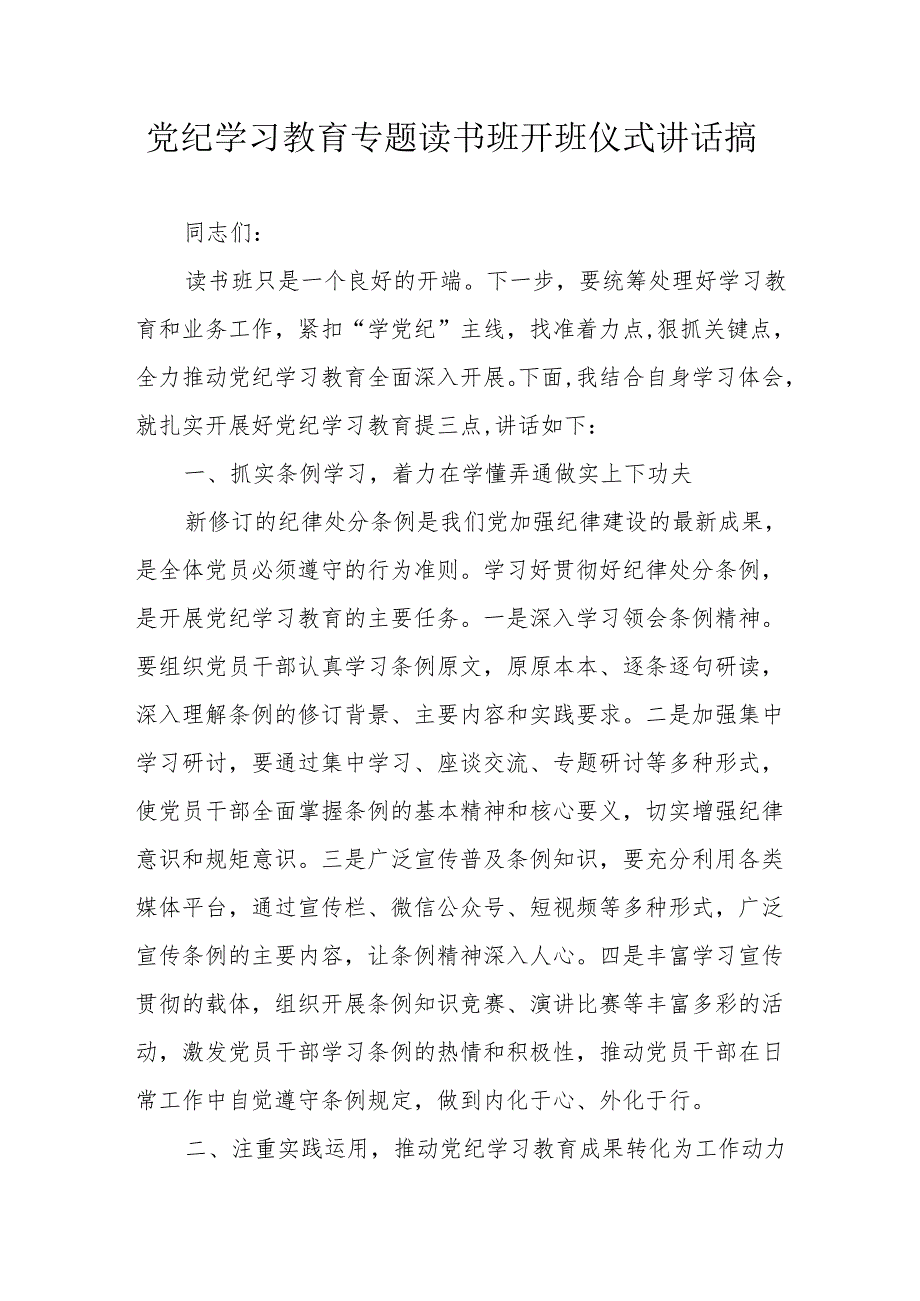 党纪学习教育专题读书班开班仪式讲话搞
同志们：
读书班只是一个良好的开端。下一步，要统筹处理好学习教
育和业务工作，紧扣“学党纪”主线，找准着力点,狠抓关键点，
全力推动党纪学习教育全面深入开展。下面,我结合自身学习体会，
就扎实开展好党纪学习教育提三点,讲话如下：
一、抓实条例学习，着力在学懂弄通做实上下功夫
新修订的纪律处分条例是我们党加强纪律建设的最新成果，
是全体党员必须遵守的行为准则。学习好贯彻好纪律处分条例，
是开展党纪学习教育的主要任务。一是深入学习领会条例精神。
要组织党员干部认真学习条例原文，原原本本、逐条逐句研读，
深入理解条例的修订背景、主要内容和实践要求。二是加强集中
学习研讨，要通过集中学习、座谈交流、专题研讨等多种形式，
使党员干部全面掌握条例的基本精神和核心要义，切实增强纪律
意识和规矩意识。三是广泛宣传普及条例知识，要充分利用各类
媒体平台，通过宣传栏、微信公众号、短视频等多种形式，广泛
宣传条例的主要内容，让条例精神深入人心。四是丰富学习宣传
贯彻的载体，组织开展条例知识竞赛、演讲比赛等丰富多彩的活
动，激发党员干部学习条例的热情和积极性，推动党员干部在日
常工作中自觉遵守条例规定，做到内化于心、外化于行。
二、注重实践运用，推动党纪学习教育成果转化为工作动力